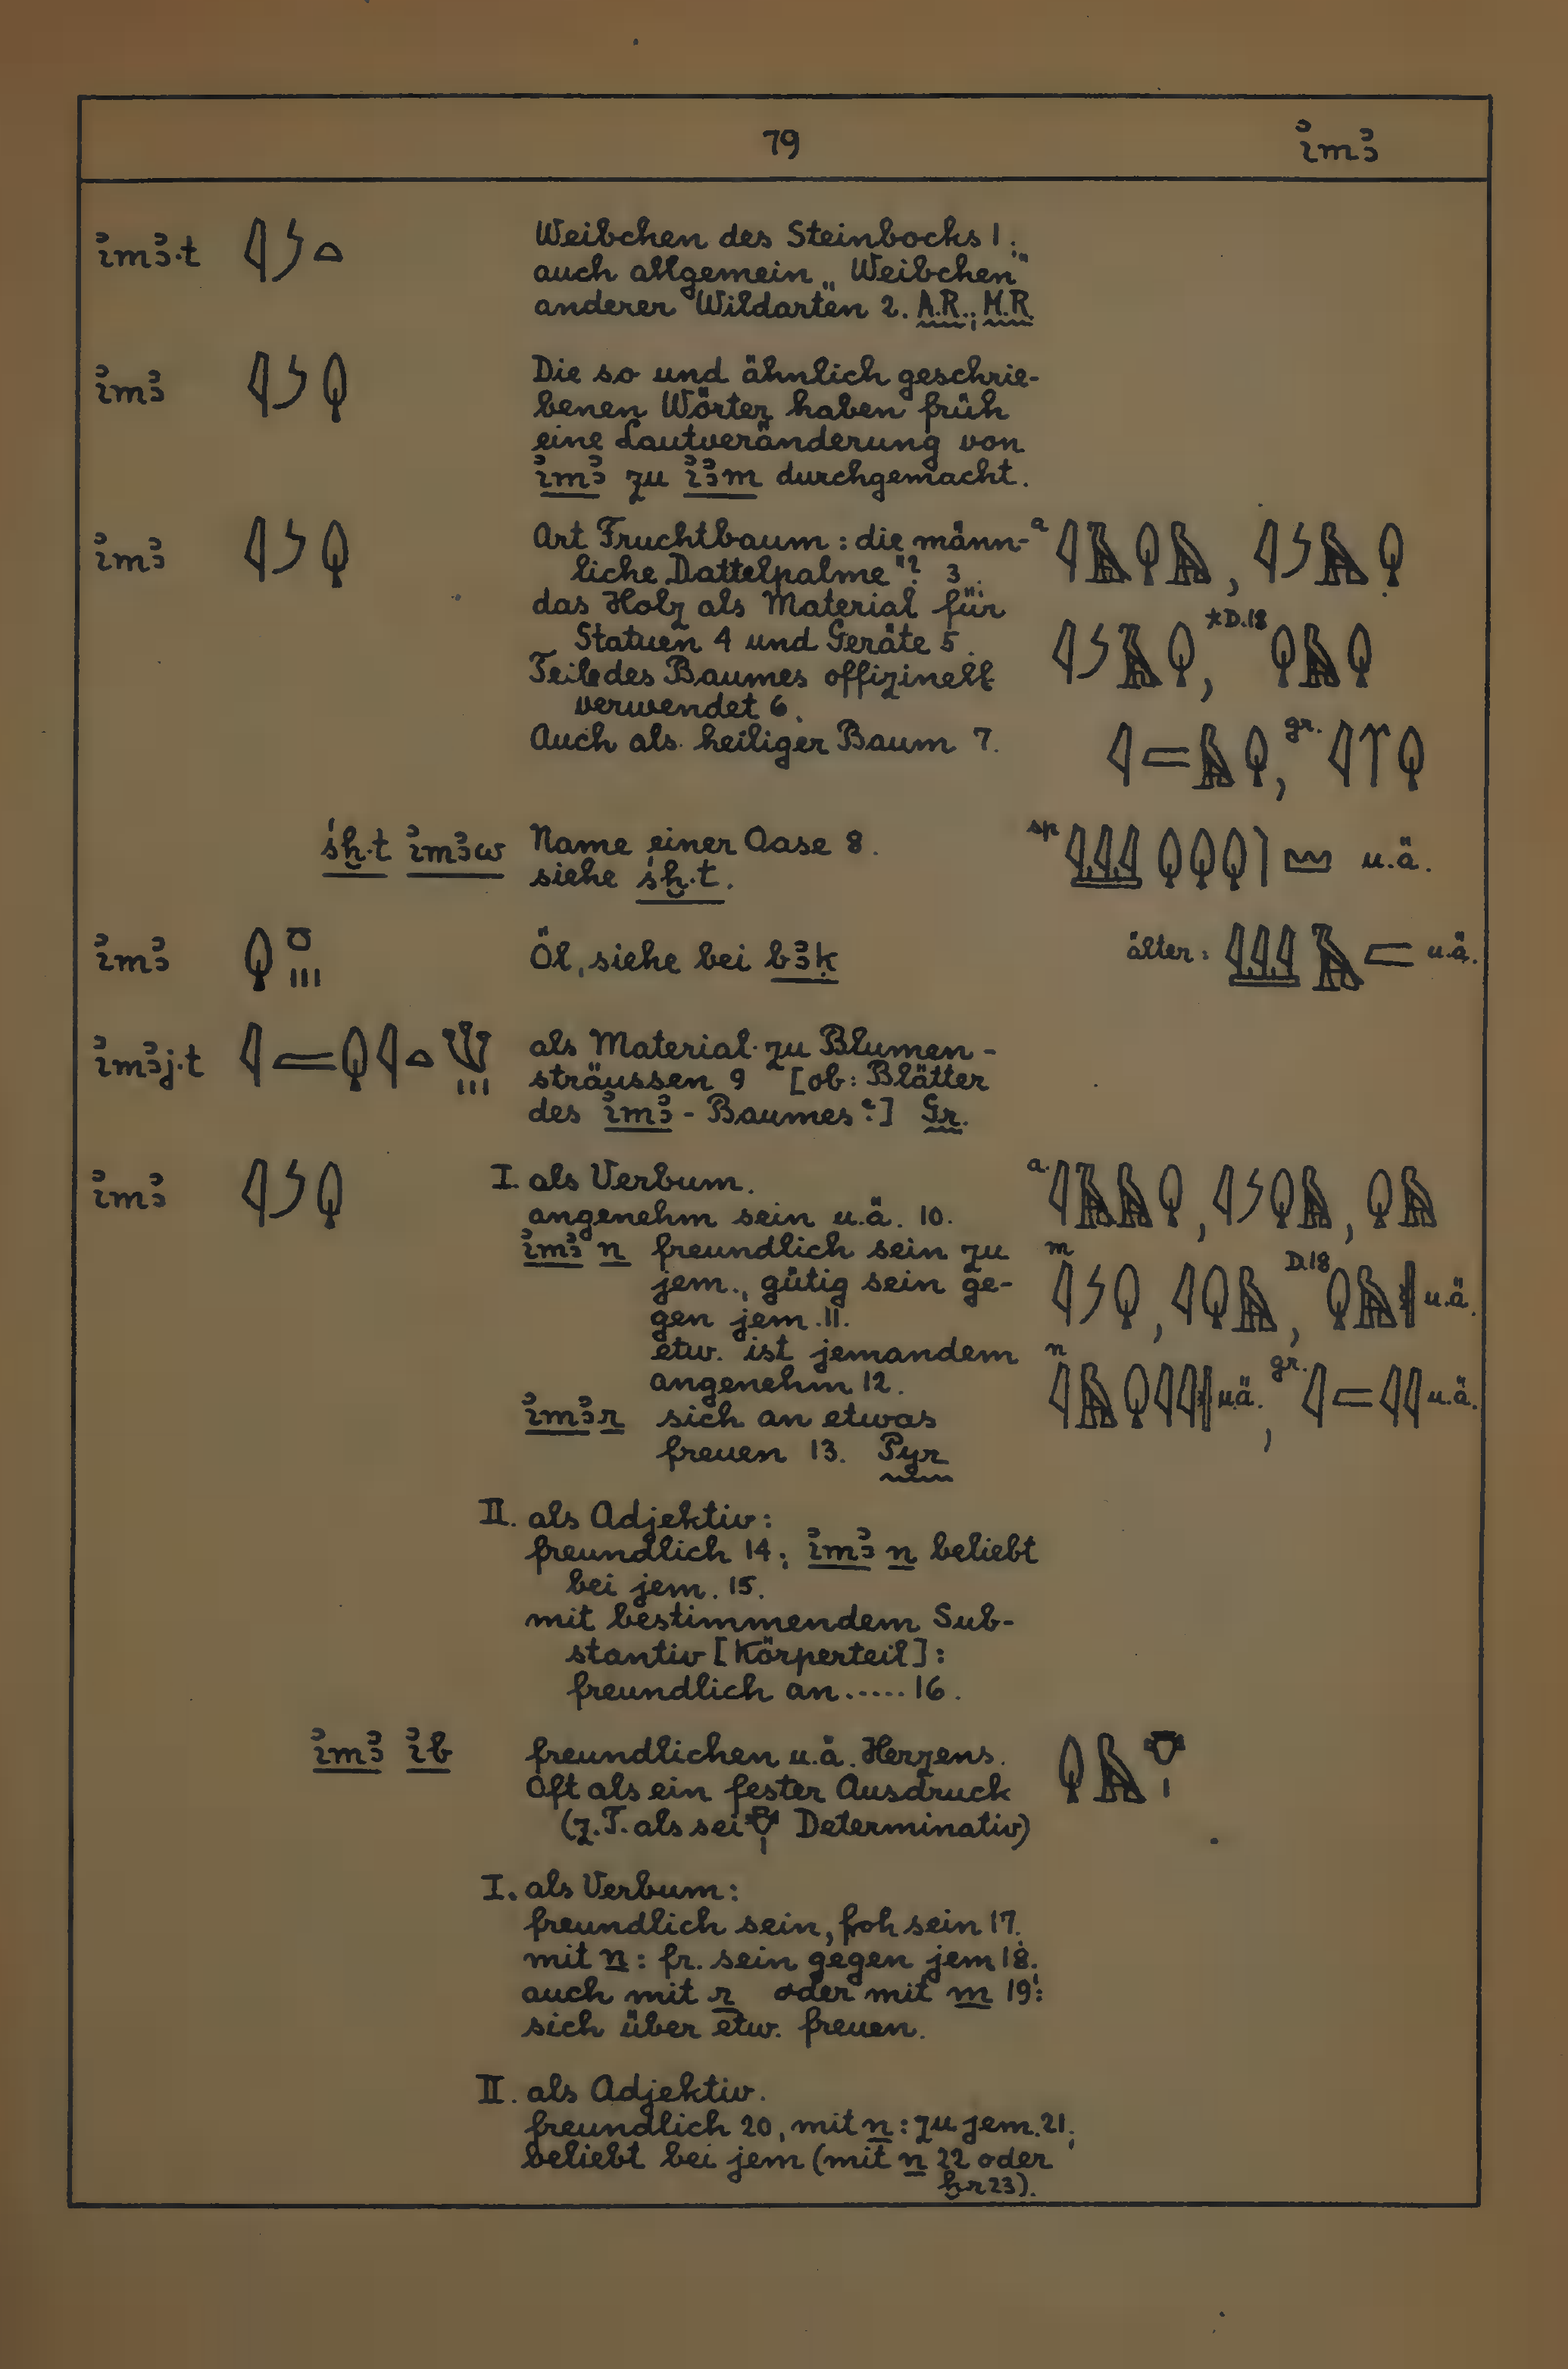 79 i͗mꜣ
i͗mꜣ·t Weibchen des Steinbocks 1;
auch allgemein „Weibchen"
anderer Wildarten 2. A.R.; M.R.
i͗mꜣ Die so und ähnlich geschrie-
benen Wörter haben früh
eine Lautveränderung von
i͗mꜣ zu i͗ꜣm durchgemacht.
i͗mꜣ Art Fruchtbaum: die männ-
liche „Dattelpalme"? 3.
das Holz als Material für
Statuen 4 und Geräte 5.
Teile des Baumes offizinell
verwendet 6.
Auch als heiliger Baum 7.
a
*D.18
gr.
śḫ·t i͗mꜣw Name einer Oase 8.
siehe śḫ·t.
sp u.ä.
i͗mꜣ Öl, siehe bei bꜣḳ
älter: u.ä.
i͗mꜣj·t als Material zu Blumen-
sträussen 9 [ob: Blätter
des i͗mꜣ-Baumes?] Gr.
i͗mꜣ I. als Verbum.
angenehm sein u.ä. 10.
i͗mꜣ n freundlich sein zu
jem., gütig sein ge-
gen jem. 11.
etw. ist jemandem
angenehm 12.
i͗mꜣ r sich an etwas
freuen 13. Pyr
a.
m D.18 u.ä.
n u.ä. gr. u.ä.
II. als Adjektiv:
freundlich 14; i͗mꜣ n beliebt
bei jem. 15.
mit bestimmendem Sub-
stantiv [Körperteil]:
freundlich an ..... 16.
i͗mꜣ i͗b freundlichen u.ä. Herzens.
Oft als ein fester Ausdruck
(z.T. als sei 𓄣 Determinativ)
I. als Verbum:
freundlich sein, froh sein 17.
mit n: fr. sein gegen jem 18.
auch mit r oder mit m 19:
sich über etw. freuen.
II. als Adjektiv.
freundlich 20, mit n: zu jem. 21;
beliebt bei jem (mit n 22 oder
ḫr 23).